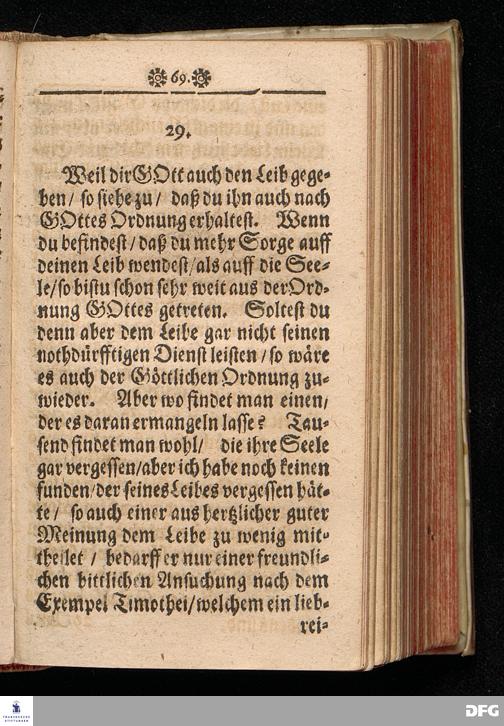 69.
29.
Weil dir GOtt auch den Leib gege-
ben / so siehe zu / daß du ihn auch nach
GOttes Ordnung erhaltest. Wenn
du befindest / daß du mehr Sorge auff
deinen Leib wendest / als auff die See-
le / so bistu schon sehr weit aus der Ord-
nung GOttes getreten. Soltest du
denn aber dem Leibe gar nicht seinen
nothdürfftigen Dienst leisten / so wäre
es auch der Göttlichen Ordnung zu-
wieder. Aber wo findet man einen /
der es daran ermangeln lasse? Tau-
send findet man wohl / die ihre Seele
gar vergessen / aber ich habe noch keinen
funden / der seines Leibes vergessen hät-
te / so auch einer aus hertzlicher guter
Meinung dem Leibe zu wenig mit-
theilet / bedarff er nur einer freundli-
chen bittlichen Ansuchung nach dem
Exempel Timothei / welchem ein lieb-
rei-
FRANCKESCHE
STIFTUNGEN
DFG